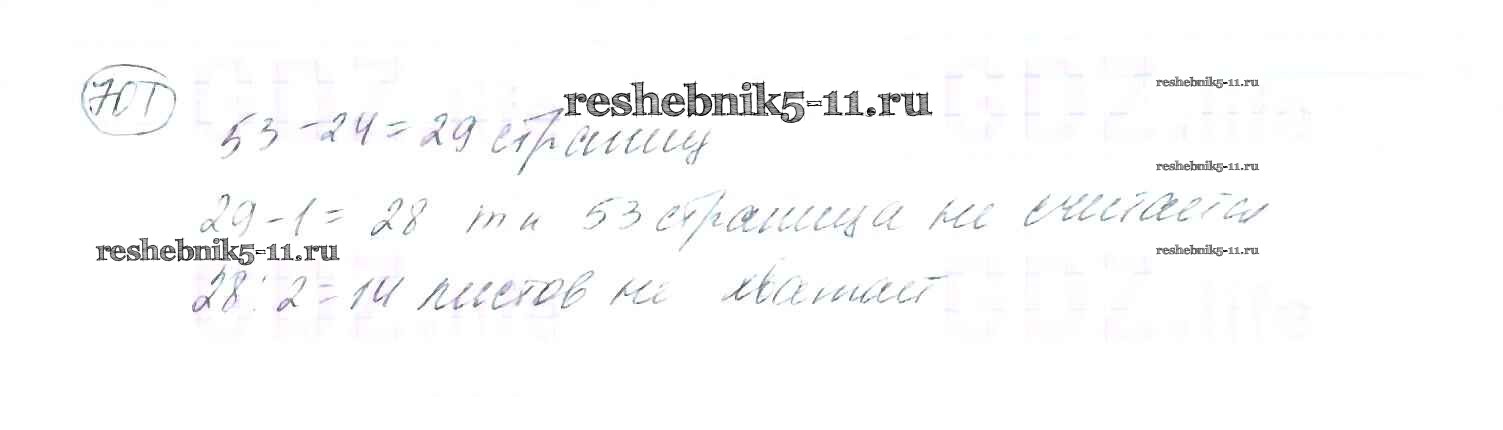 707
reshebnik5-11.ru
reshebnik5-11.ru
53 - 24 = 29 страниц
reshebnik5-11.ru
29 - 1 = 28 т к 53 страница не считается
reshebnik5-11.ru
reshebnik5-11.ru
28 : 2 = 14 листов не хватает